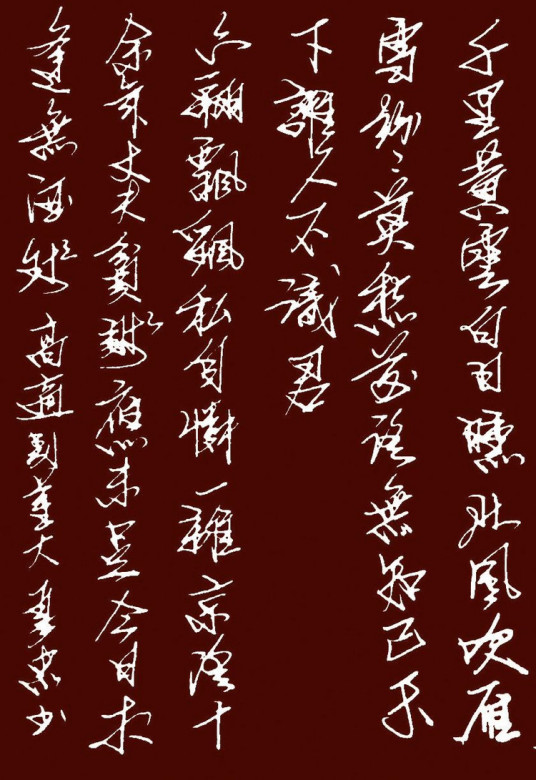 千里黄雲白日曛北風吹雁
雪紛〻莫愁前路無知己天
下誰人不識君
六翮飄飖私自憐一離京洛十
余年丈夫貧賤應未足今日相
逢無酒錢 高適別董大 忠书